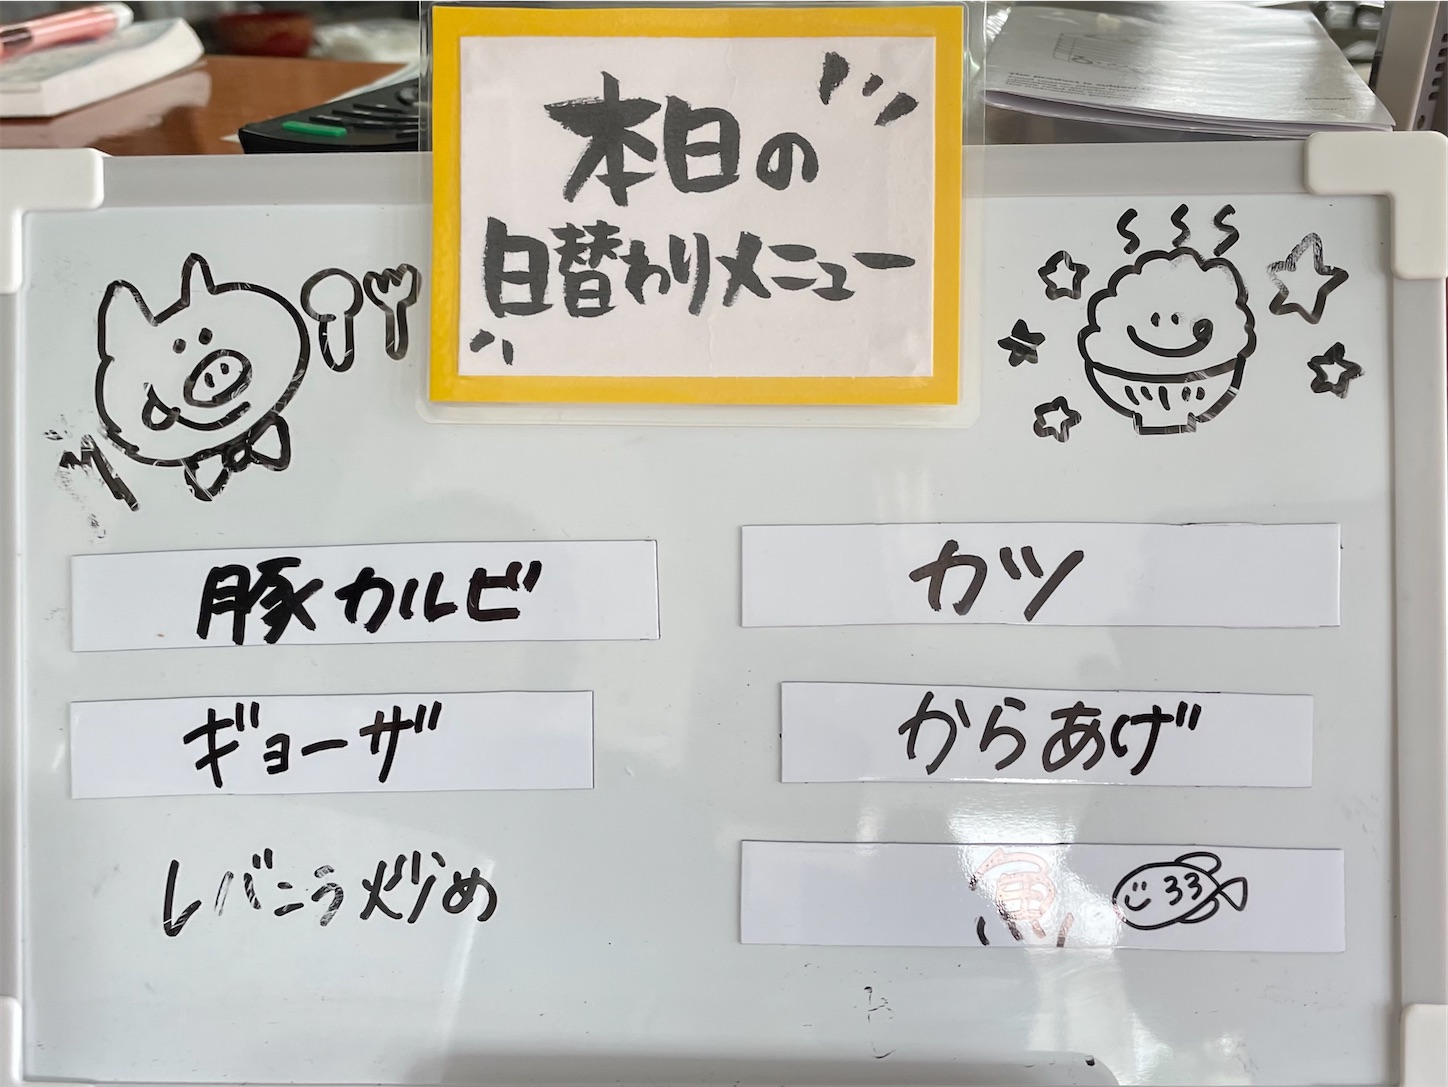 本日の
日替わりメニュー
豚カルビ
カツ
ギョーザ
からあげ
レバニラ炒め
魚